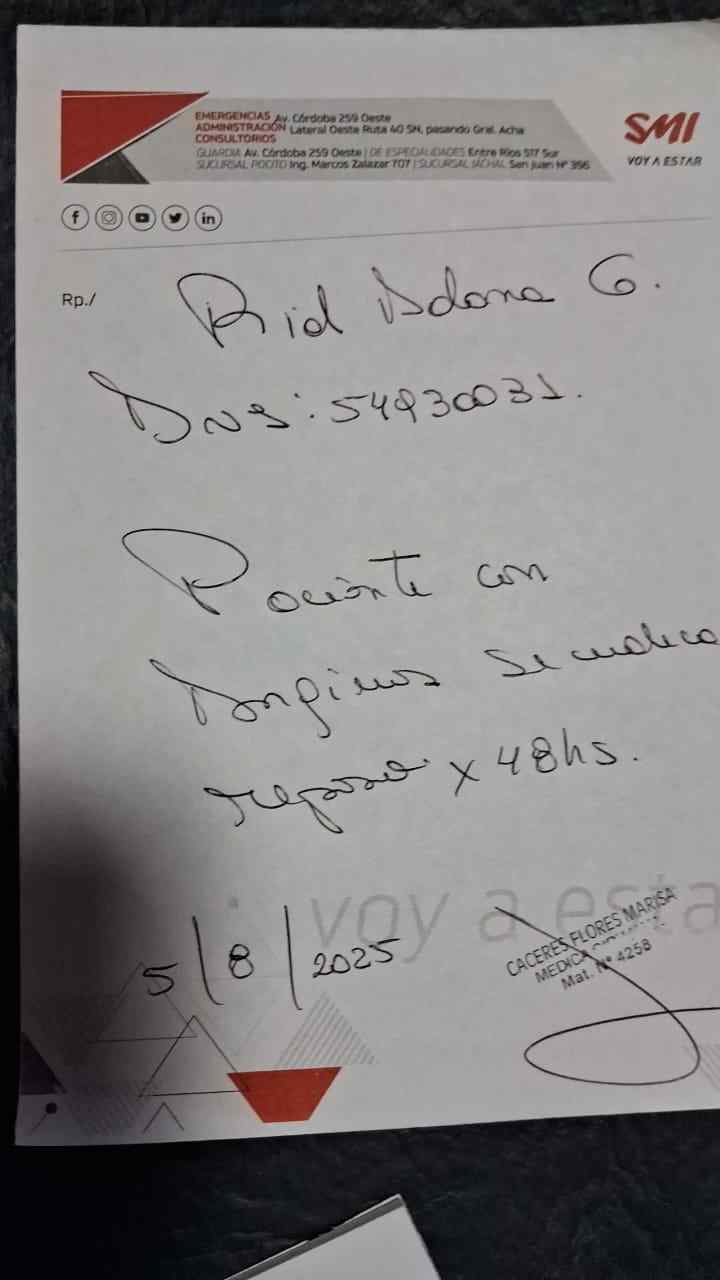 EMERGENCIAS Av. Córdoba 259 Oeste
ADMINISTRACIÓN Lateral Oeste Ruta 40 SN, pasando Gral. Acha
CONSULTORIOS
GUARDIA Av. Córdoba 259 Oeste | DE ESPECIALIDADES Entre Ríos 517 Sur
SUCURSAL POCITO Ing. Marcos Zalazar 707 | SUCURSAL JÁCHAL San Juan N° 396
SMI
VOY A ESTAR
Rp./
Rid G.
DNI: 54930031.
Paciente con
Anginas Se indica
reposo x 48hs.
voy a esta
5/8/2025
CACERES FLORES MARISA
MEDICA
Mat. N° 4258